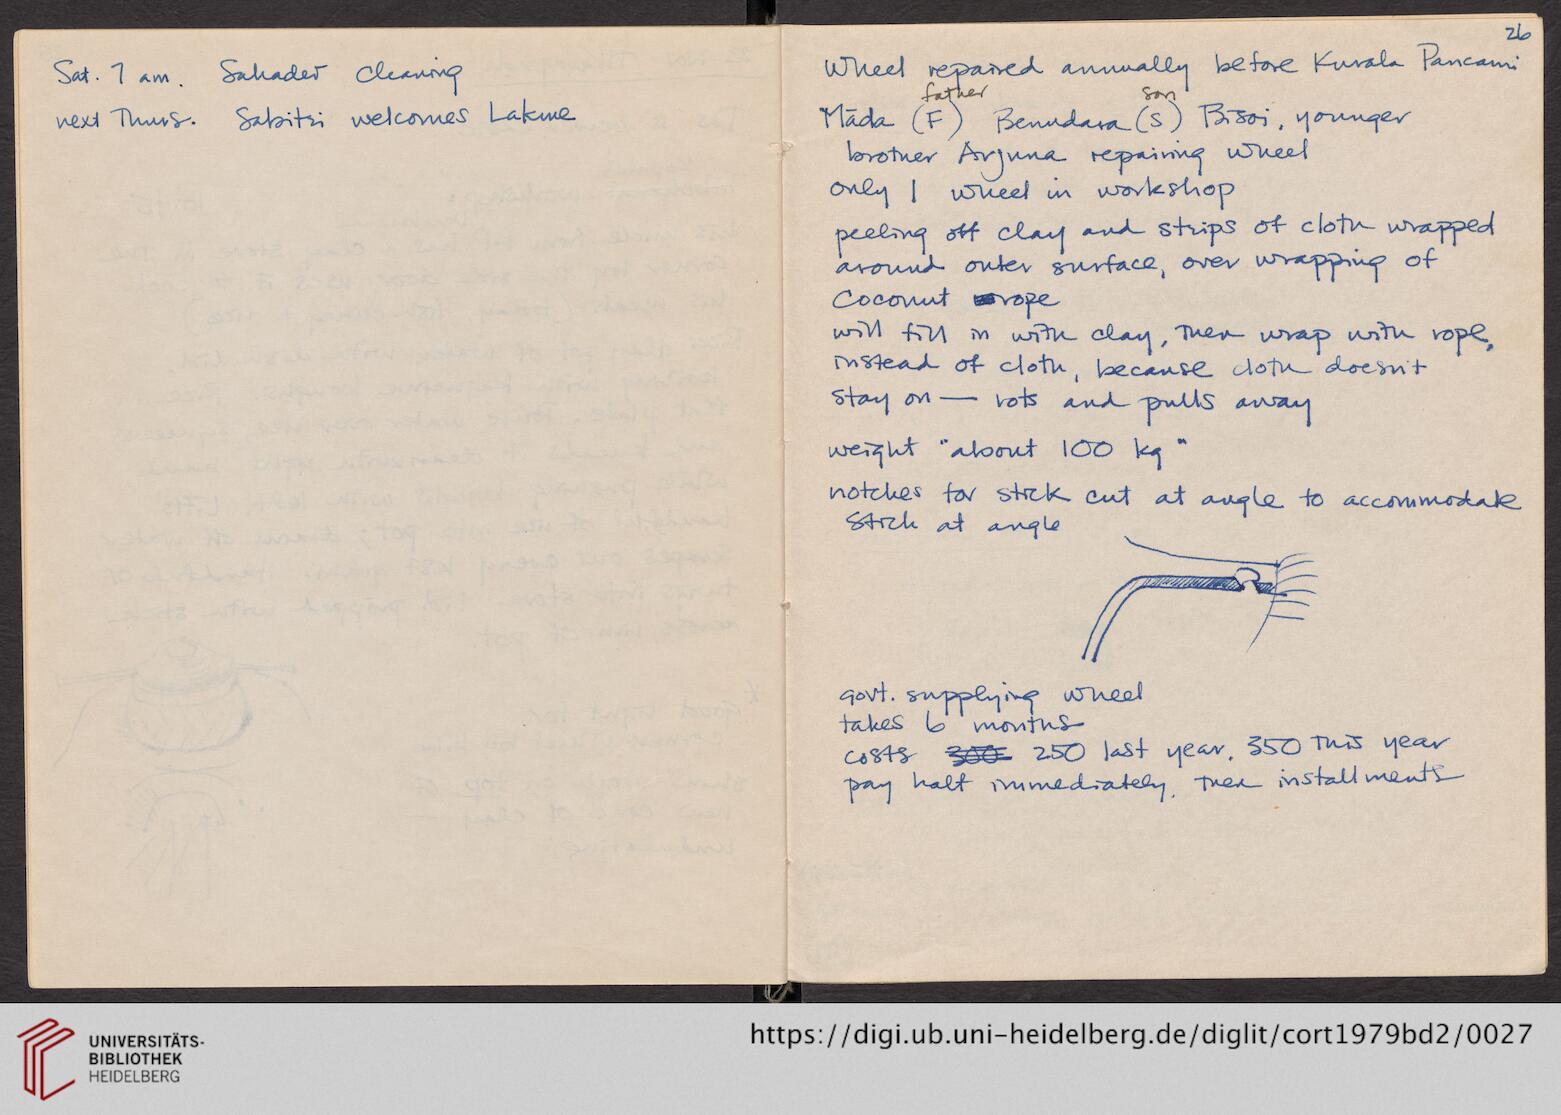 Sat. 7 am. Sahadev Cleaning
next Thurs. Sabitri welcomes Lakme
26
Wheel repaired annually before Kurala Pancami
father son
Māda (F) Benudara (S) Bisoi, younger
brother Arjuna repairing wheel
only 1 wheel in workshop
peeling off clay and strips of cloth wrapped
around outer surface, over wrapping of
Coconut rope
will fill in with clay, then wrap with rope,
instead of cloth, because cloth doesn't
stay on — rots and pulls away
weight "about 100 kg"
notches for stick cut at angle to accommodate
stick at angle
govt. supplying wheel
takes 6 months
costs 300 250 last year, 350 this year
pay half immediately, then installments
UNIVERSITÄTS-
BIBLIOTHEK
HEIDELBERG
https://digi.ub.uni-heidelberg.de/diglit/cort1979bd2/0027